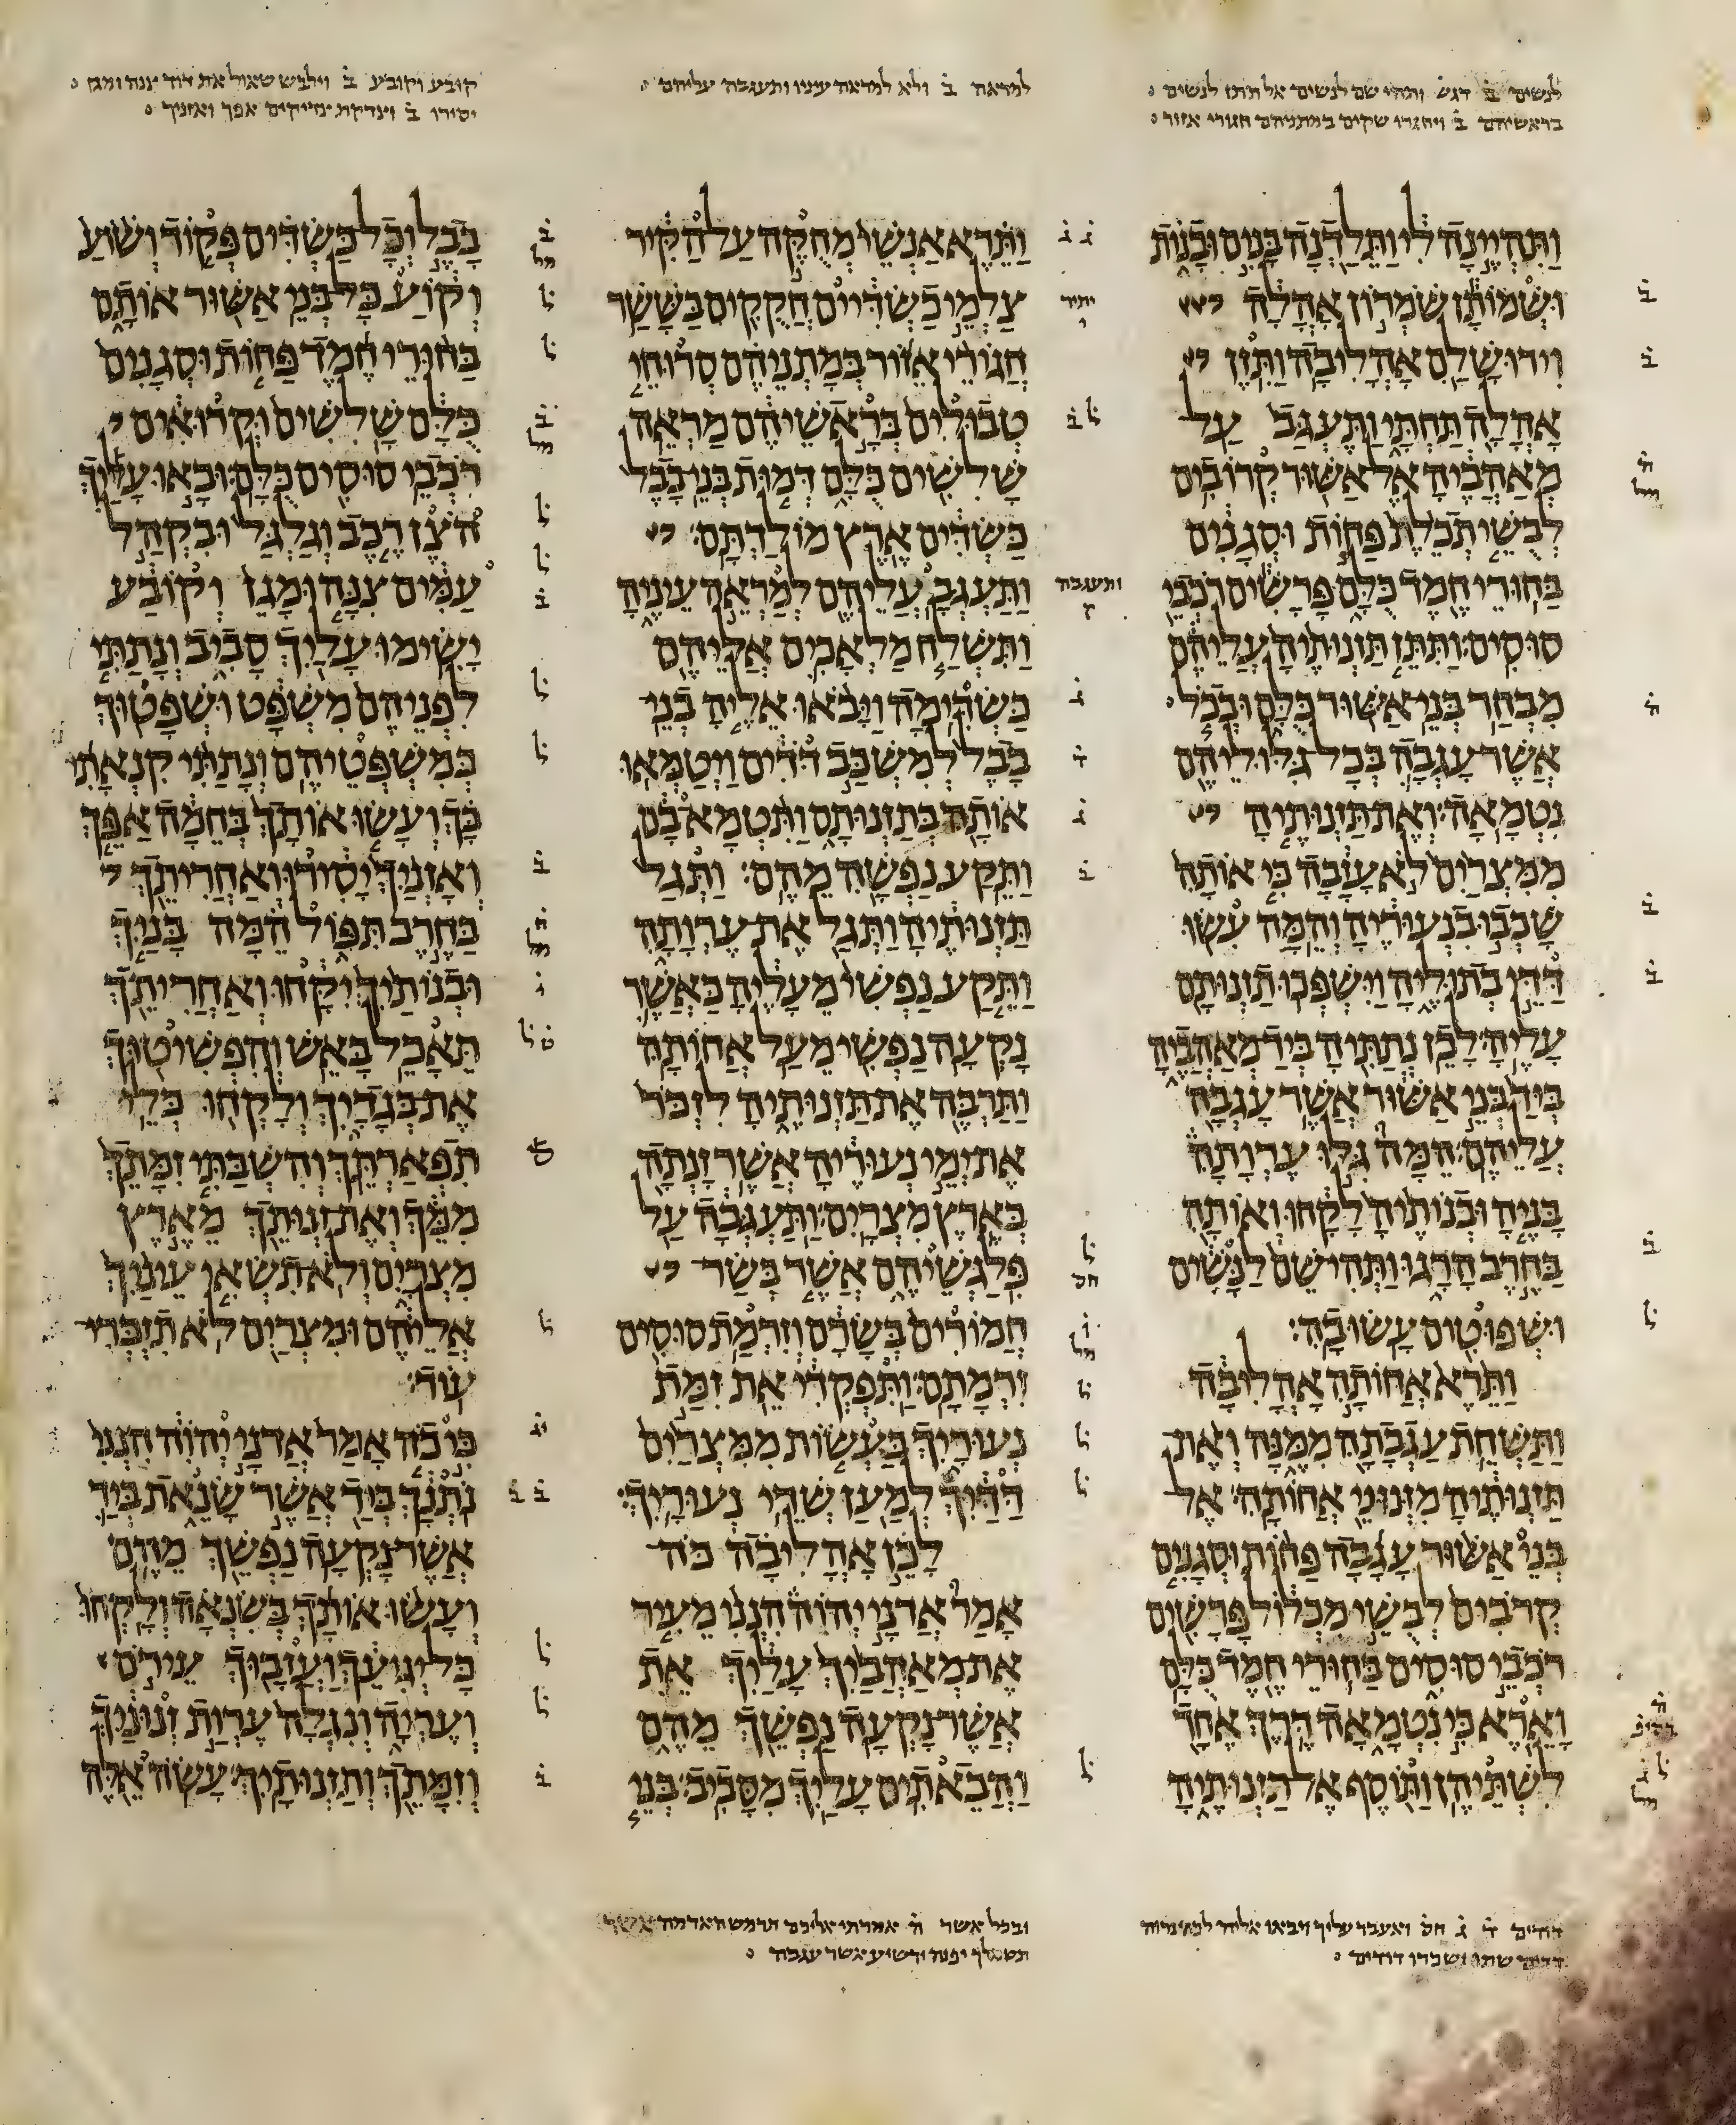 לנשים ב דגש ותהי שם לנשים אל תתן לנשים
בראשיהם ב ויחגרו שקים במתניהם חגורי אזור
למראה ב ולא למראה עיניו ותעגבה עליהם
קובע וקובע ב וילבש שאול את דוד צנה ומגן
יסירו ב וצדקת צדיקים אפך ואזניך
ותהיינה לי ותלדנה בנים ובנות
ושמותן שמרון אהלה
וירושלם אהליבה ותזן
אהלה תחתי ותעגב על
מאהביה אל אשור קרובים
לבשי תכלת פחות וסגנים
בחורי חמד כלם פרשים רכבי
סוסים׃ ותתן תזנותיה עליהם
מבחר בני אשור כלם ובכל
אשר עגבה בכל גלוליהם
נטמאה׃ ואת תזנותיה
ממצרים לא עזבה כי אותה
שכבו בנעוריה והמה עשו
דדי בתוליה וישפכו תזנותם
עליה׃ לכן נתתיה ביד מאהביה
ביד בני אשור אשר עגבה
עליהם׃ המה גלו ערותה
בניה ובנותיה לקחו ואותה
בחרב הרגו ותהי שם לנשים
ושפוטים עשו בה׃
ותרא אחותה אהליבה
ותשחת עגבתה ממנה ואת
תזנותיה מזנוני אחותה׃ אל
בני אשור עגבה פחות וסגנים
קרבים לבשי מכלול פרשים
רכבי סוסים בחורי חמד כלם
וארא כי נטמאה דרך אחד
לשתיהן׃ ותוסף אל תזנותיה
ותרא אנשי מחקה על הקיר
צלמי כשדיים חקקים בששר
חגורי אזור במתניהם סרוחי
טבולים בראשיהם מראה
שלשים כלם דמות בני בבל
כשדים ארץ מולדתם׃
ותעגב עליהם למראה עיניה
ותשלח מלאכים אליהם
כשדימה׃ ויבאו אליה בני
בבל למשכב דדים ויטמאו
אותה בתזנותם ותטמא בם
ותקע נפשה מהם׃ ותגל
תזנותיה ותגל את ערותה
ותקע נפשי מעליה כאשר
נקעה נפשי מעל אחותה
ותרבה את תזנותיה לזכר
את ימי נעוריה אשר זנתה
בארץ מצרים׃ ותעגבה על
פלגשיהם אשר בשר
חמורים בשרם וזרמת סוסים
זרמתם׃ ותפקדי את זמת
נעוריך בעשות ממצרים
דדיך למען שדי נעוריך׃
לכן אהליבה כה
אמר אדני יהוה הנני מעיר
את מאהביך עליך את
אשר נקעה נפשך מהם
והבאתים עליך מסביב׃ בני
בבל וכל כשדים פקוד ושוע
וקוע כל בני אשור אותם
בחורי חמד פחות וסגנים
כלם שלשים וקרואים
רכבי סוסים כלם׃ ובאו עליך
הצן רכב וגלגל ובקהל
עמים צנה ומגן וקובע
ישימו עליך סביב ונתתי
לפניהם משפט ושפטוך
במשפטיהם׃ ונתתי קנאתי
בך ועשו אותך בחמה אפך
ואזניך יסירו ואחריתך
בחרב תפול המה בניך
ובנותיך יקחו ואחריתך
תאכל באש׃ והפשיטוך
את בגדיך ולקחו כלי
תפארתך׃ והשבתי זמתך
ממך ואת זנותך מארץ
מצרים ולא תשאי עיניך
אליהם ומצרים לא תזכרי
עוד׃
כי כה אמר אדני יהוה הנני
נתנך ביד אשר שנאת ביד
אשר נקעה נפשך מהם׃
ועשו אותך בשנאה ולקחו
כל יגיעך ועזבוך עירם
ועריה ונגלה ערות זנוניך
וזמתך ותזנותיך׃ עשה אלה
דודים ד ג חס ואעבר עליך ויבאו אליה
דדים שתו ושכרו דודים
ובכל אשר ה אמרתי אליכם תרמש האדמה אשר
יפנה ירשיע אשר עגבה